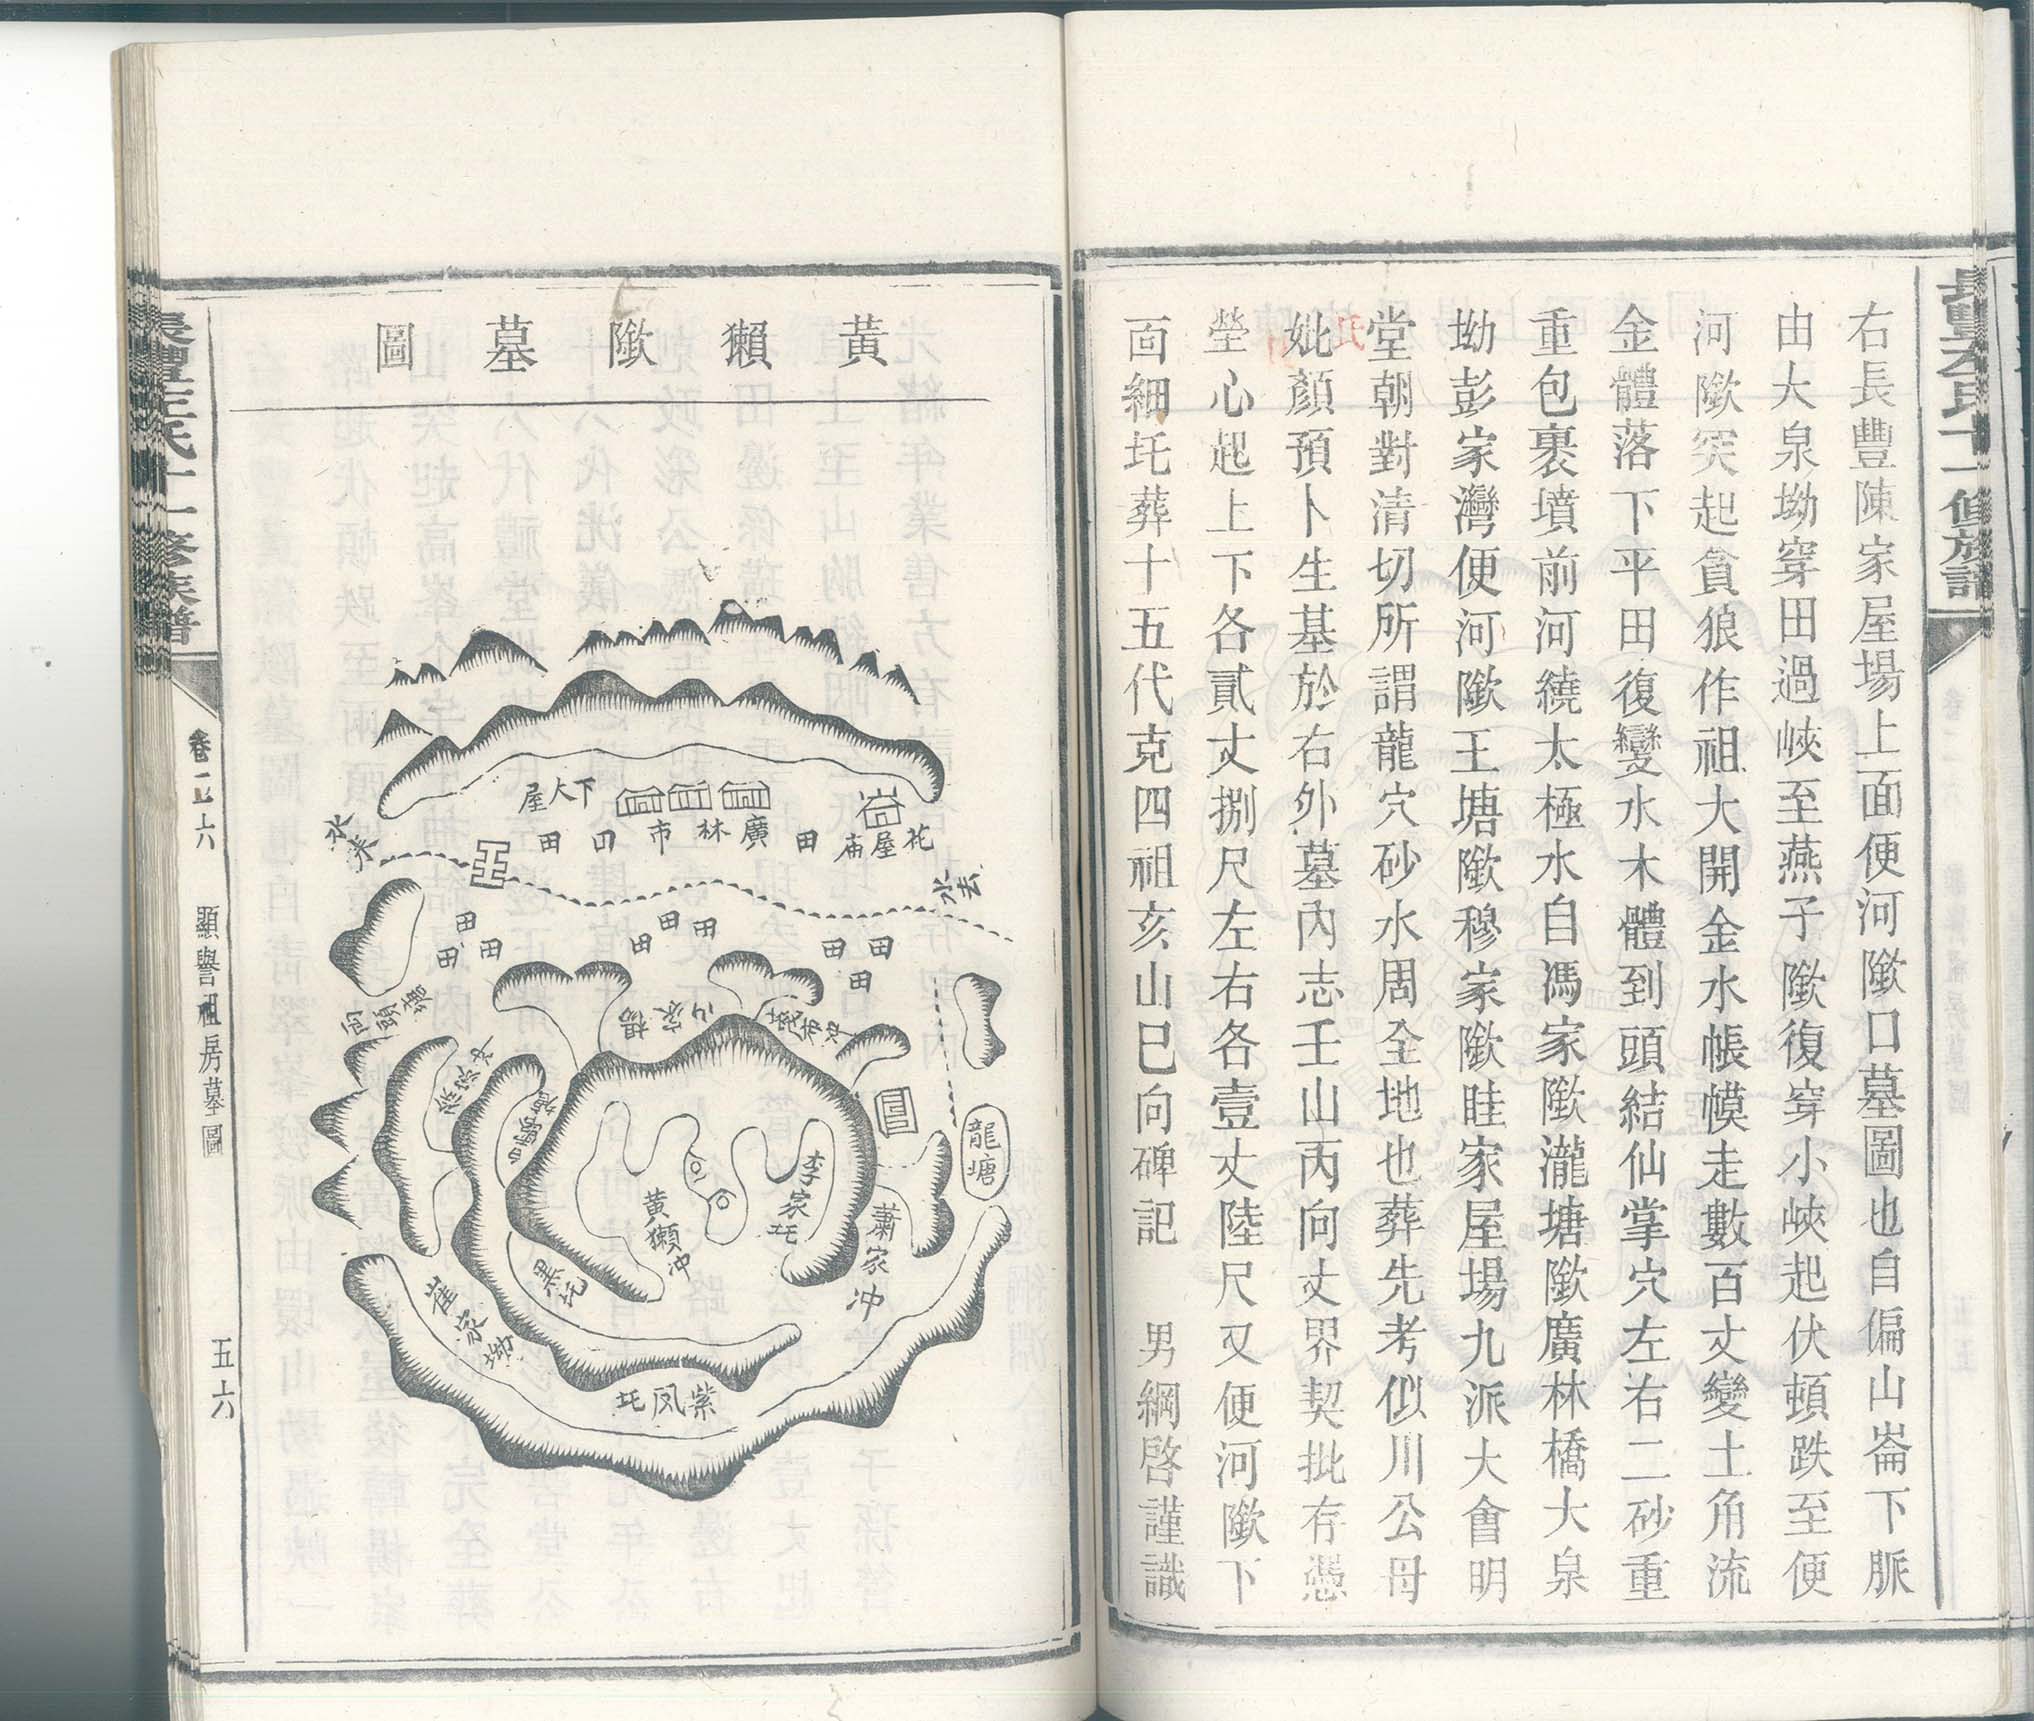 右長豐陳家屋場上面便河隞口墓圖也自偏山崙下脈
由大泉坳穿田過峽至燕子隞復穿小峽起伏頓跌至便
河隞突起貪狼作祖大開金水帳幙走數百丈變土角流
金體落下平田復變水木體到頭結仙掌穴左右二砂重
重包裹墳前河繞太極水自馮家隞瀧塘隞廣林橋大泉
坳彭家灣便河隞王塘隞穆家隞眭家屋場九派大會明
堂朝對清切所謂龍穴砂水周全地也葬先考似川公母
妣顏預卜生基於右外墓內志壬山丙向丈界契批存憑
塋心起上下各貳丈捌尺左右各壹丈陸尺又便河隞下
面細圫葬十五代克四祖亥山巳向碑記　男綱啓謹識
黃獺隞墓圖
下大屋
廣林市
花屋庙
田
田
田
水来
水去
田
田
田
田
田
田
田
田
田
楊家山
龍塘
李家圫
黄獺冲
蕭家冲
崔家坳
紫凤圫
十一修族譜
顯譽祖房墓圖
五六